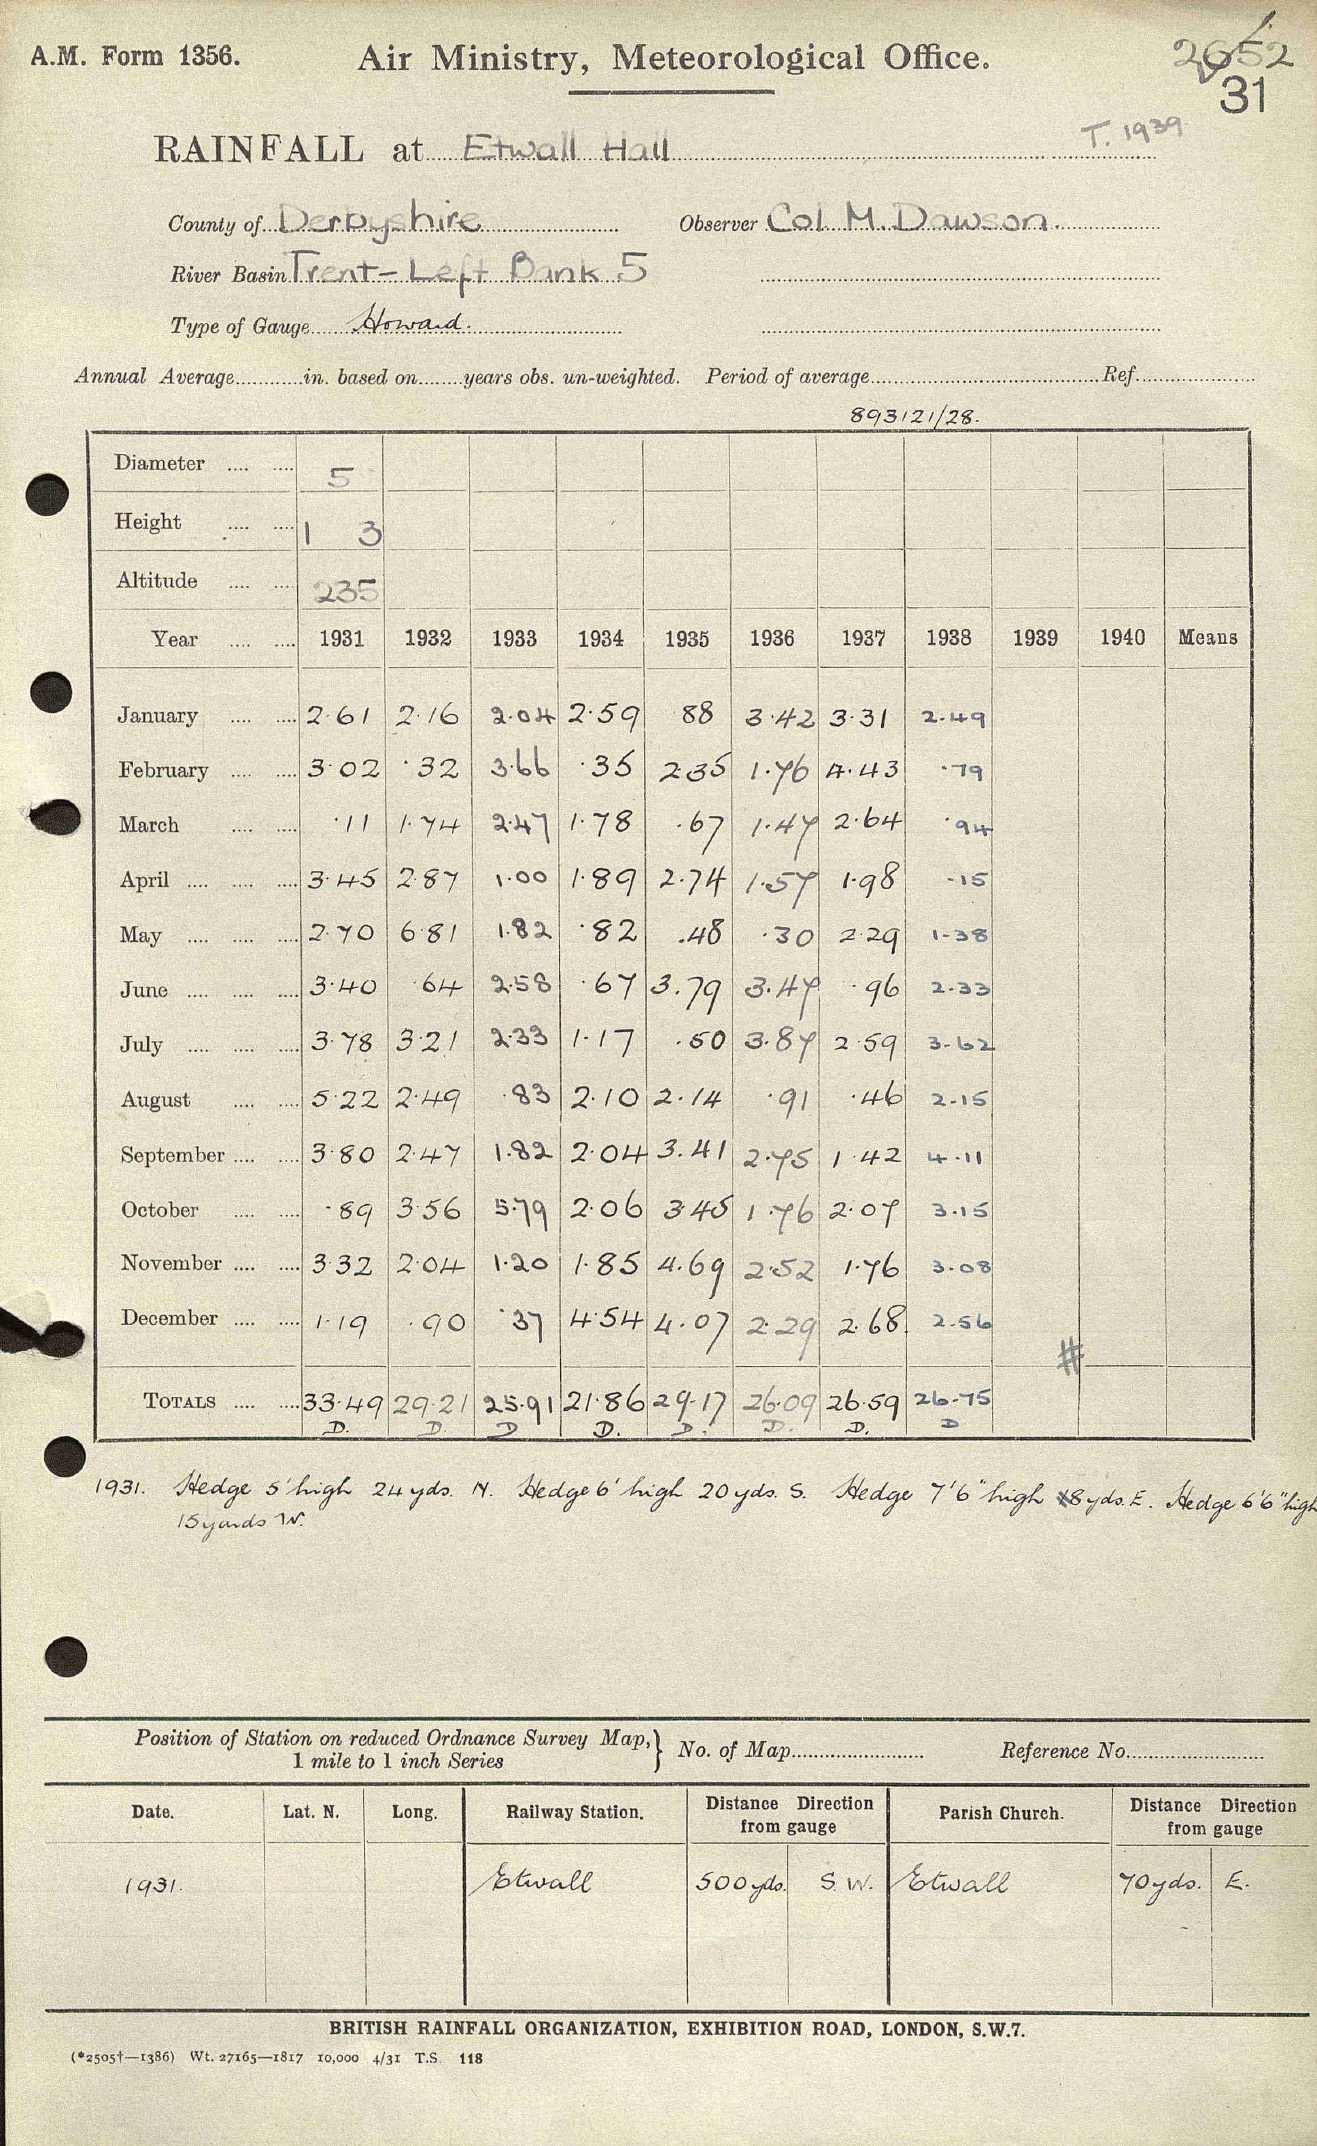 A.M. Form 1356. Air Ministry, Meteorological Office. 2652
31
T. 1939.
RAINFALL at Etwall Hall
County of Derbyshire Observer Col M. Dawson.
River Basin Trent - Left Bank 5
Type of Gauge Howard.
Annual Average in. based on years obs. un-weighted. Period of average Ref.
893121/28.
Diameter 5
Height 1 3
Altitude 235
Year 1931 1932 1933 1934 1935 1936 1937 1938 1939 1940 Means
January 2.61 2.16 2.04 2.59 .88 3.42 3.31 2.49
February 3.02 .32 3.66 .35 2.35 1.76 4.43 .79
March .11 1.74 2.47 1.78 .67 1.47 2.64 .94
April 3.45 2.87 1.00 1.89 2.74 1.57 1.98 .15
May 2.70 6.81 1.82 .82 .48 .30 2.29 1.38
June 3.40 .64 2.58 .67 3.79 3.47 .96 2.33
July 3.78 3.21 2.33 1.17 .50 3.87 2.59 3.62
August 5.22 2.49 .83 2.10 2.14 .91 .46 2.15
September 3.80 2.47 1.82 2.04 3.41 2.75 1.42 4.11
October .89 3.56 5.79 2.06 3.45 1.76 2.07 3.15
November 3.32 2.04 1.20 1.85 4.69 2.52 1.76 3.08
December 1.19 .90 .37 4.54 4.07 2.29 2.68 2.56
#
TOTALS 33.49 29.21 25.91 21.86 29.17 26.09 26.59 26.75
D. D. D D. D. D. D. D
1931. Hedge 5' high 24 yds. N. Hedge 6' high 20 yds. S. Hedge 7'6" high 8 yds. E. Hedge 6'6" high
15 yards W.
Position of Station on reduced Ordnance Survey Map, 1 mile to 1 inch Series } No. of Map Reference No.
Date. Lat. N. Long. Railway Station. Distance Direction from gauge Parish Church. Distance Direction from gauge
1931. Etwall 500 yds. S.W. Etwall 70 yds. E.
BRITISH RAINFALL ORGANIZATION, EXHIBITION ROAD, LONDON, S.W.7.
(*2505†—1386) Wt. 27165—1817 10,000 4/31 T.S. 118